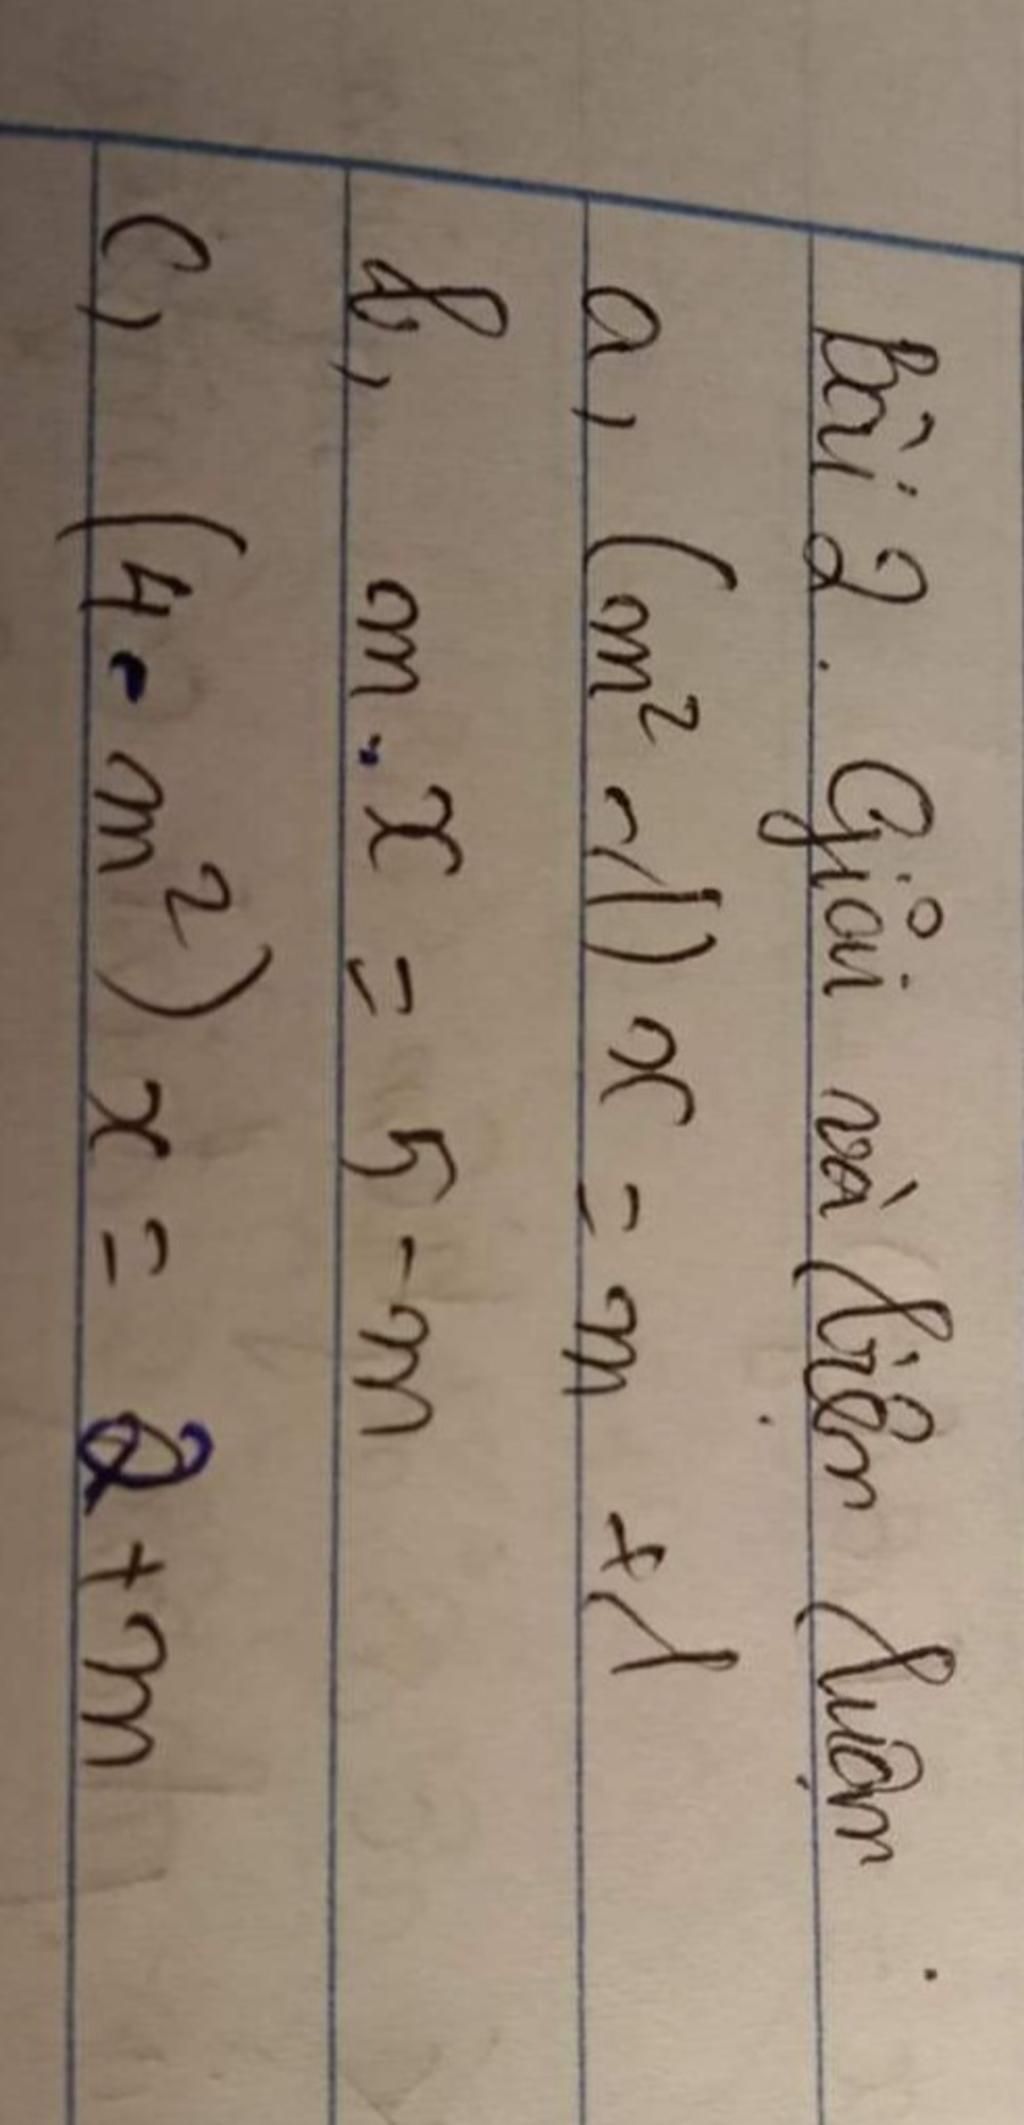 Bài 2. Giải và biện luận.
a, (m² - 1) x = m + 1
b, m.x = 5 - m
c, (4 - m²) x = 2 + m